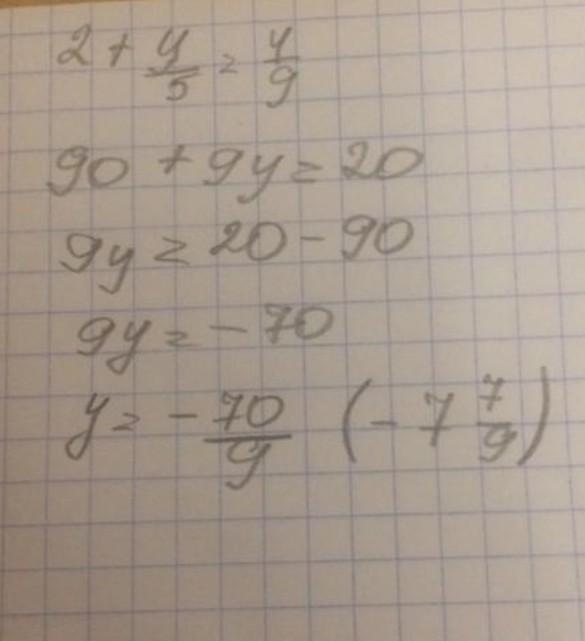 2 + y/5 = 4/9
90 + 9y = 20
9y = 20 - 90
9y = - 70
y = - 70/9 (- 7 7/9)